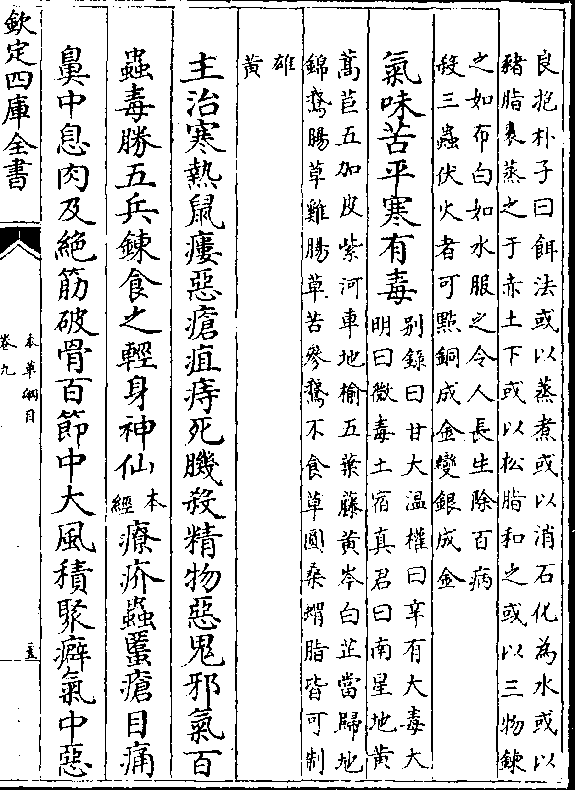 良抱朴子曰餌法或以蒸煮或以消石化為水或以
豬脂裹蒸之于赤土下或以松脂和之或以三物鍊
之如布白如冰服之令人長生除百病
殺三蟲伏火者可點銅成金變銀成金
氣味苦平寒有毒
别錄曰甘大温權曰辛有大毒大
明曰微毒土宿真君曰南星地黄
萵苣五加皮紫河車地榆五葉藤黄芩白芷當歸地
錦鵞腸草雞腸草苦參鵞不食草圓桑蝟脂皆可制
雄
黄
主治寒熱鼠瘻惡瘡疽痔死肌殺精物惡鬼邪氣百
蟲毒勝五兵鍊食之輕身神仙
本
經
療疥蟲䘌瘡目痛
鼻中息肉及絶筋破骨百節中大風積聚癖氣中惡
欽定四庫全書
本草綱目
卷九